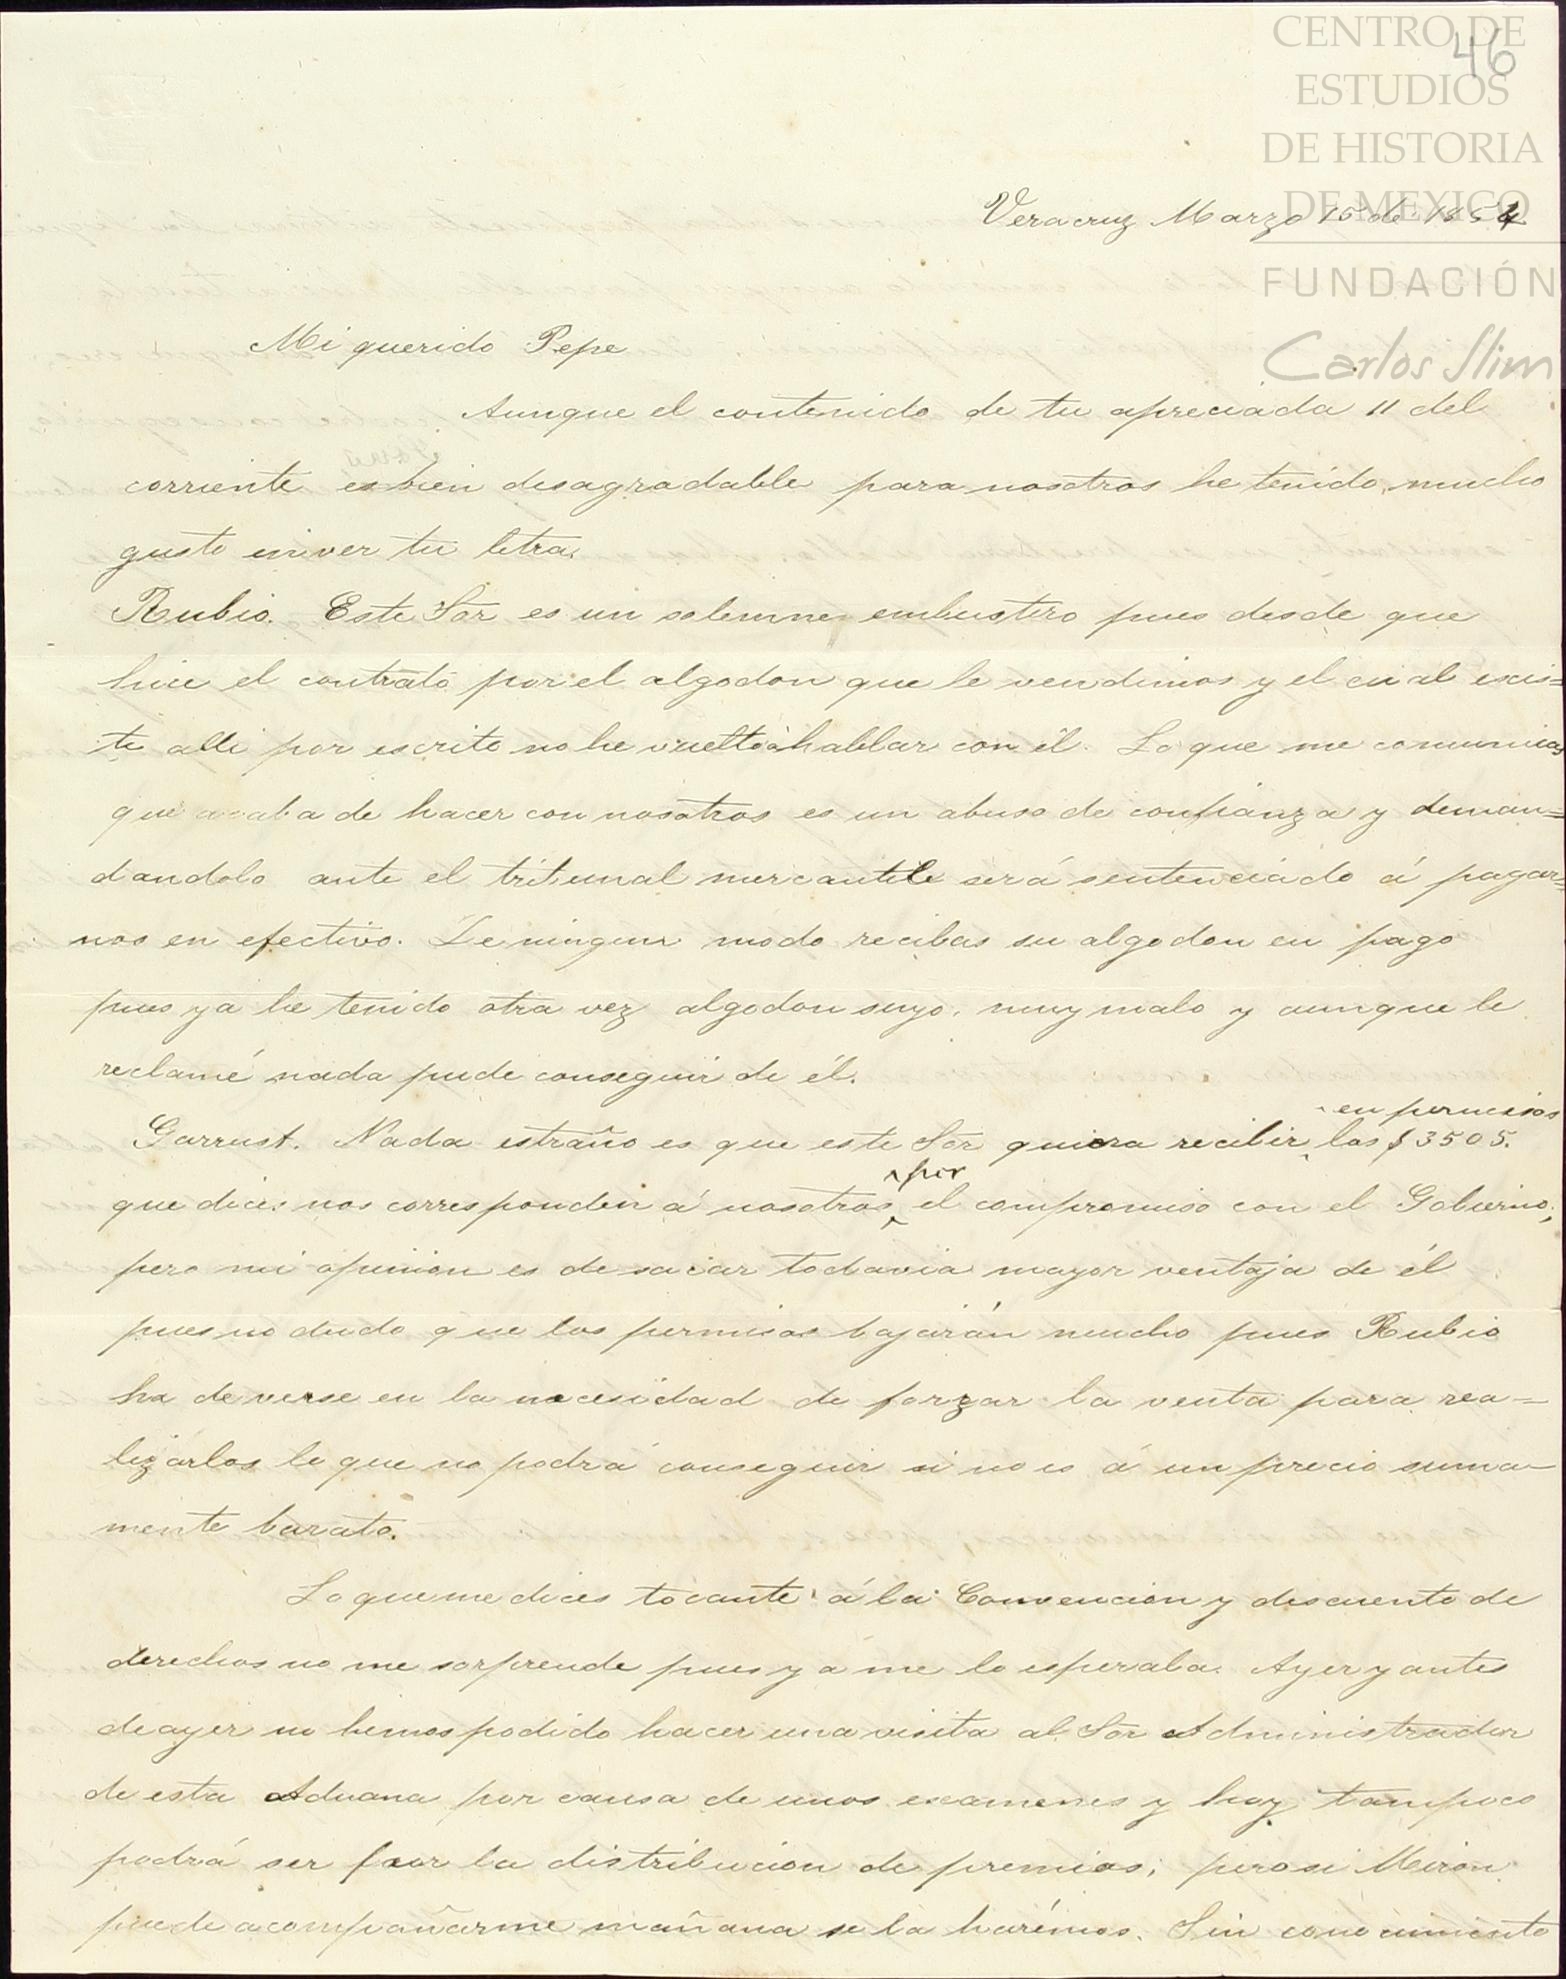 CENTRO DE
ESTUDIOS
DE HISTORIA
DE MEXICO
FUNDACIÓN
Carlos Slim
46
Veracruz Marzo 15 de 1854
Mi querido Pepe
Aunque el contenido de tu apreciada 11 del
corriente es bien desagradable para nosotros he tenido mucho
gusto en ver tu letra.
Rubio. Este Sor es un solemne embustero pues desde que
hice el contrato por el algodon que le vendimos y el cual ecsis=
te alli por escrito no he vuelto á hablar con él. Lo que me comunicas
que acaba de hacer con nosotros es un abuso de confianza y deman=
dandolo ante el tribunal mercantile será sentenciado á pagar=
nos en efectivo. De ningun modo recibas su algodon en pago
pues ya he tenido otra vez algodon suyo, muy malo y aunque le
reclamé nada pude conseguir de él.
en permisos
Garrust. Nada estraño es que este Sor quiera recibir los $3505.
por
que dices nos corresponden á nosotros el compromiso con el Gobierno;
pero mi opinion es de sacar todavia mayor ventaja de él
pues no dudo que los permisos bajarán mucho pues Rubio
ha de verse en la necesidad de forzar la venta para rea-
lizarlos lo que no podrá conseguir si no es á un precio suma-
mente barato.
Lo que me dices tocante á la Convencion y descuento de
derechos no me sorprende pues ya me lo esperaba. Ayer y antes
de ayer no hemos podido hacer una visita al Sor Administrador
de esta Aduana por causa de unos ecsamenes y hoy tampoco
podrá ser por la distribucion de premios; pero si Miron
puede acompañarme mañana se la harémos. Sin conocimiento